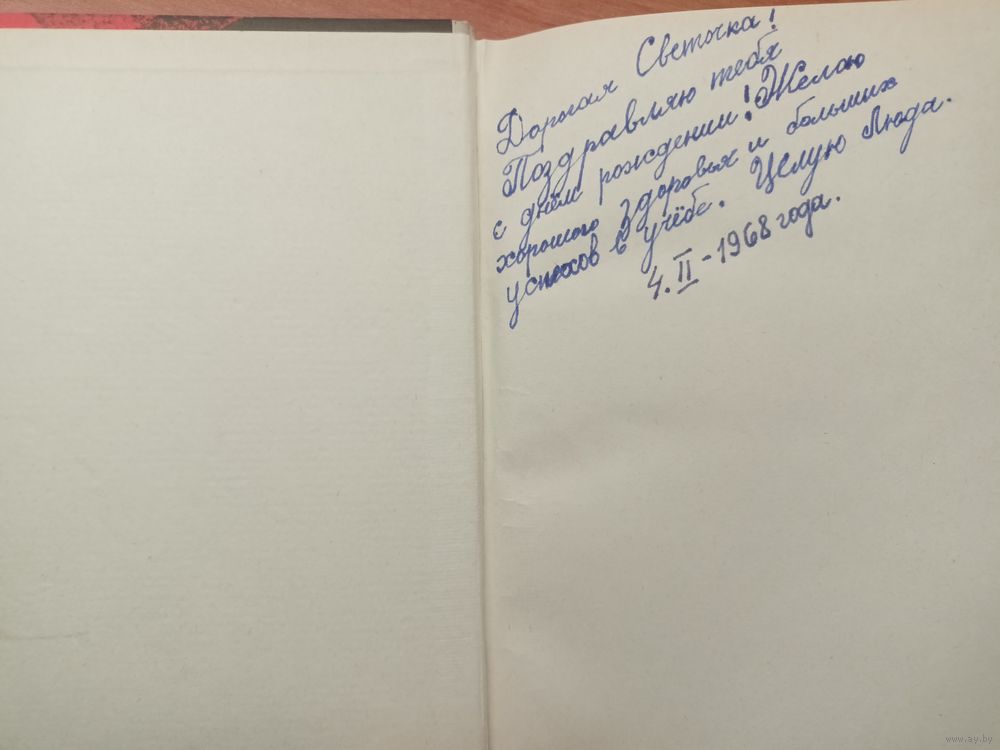 Дорогая Светочка!
Поздравляю тебя
с днём рождении! Желаю
хорошого здоровья и больших
успехов в учёбе. Целую Люда.
4. II - 1968 года.
www.ay.by